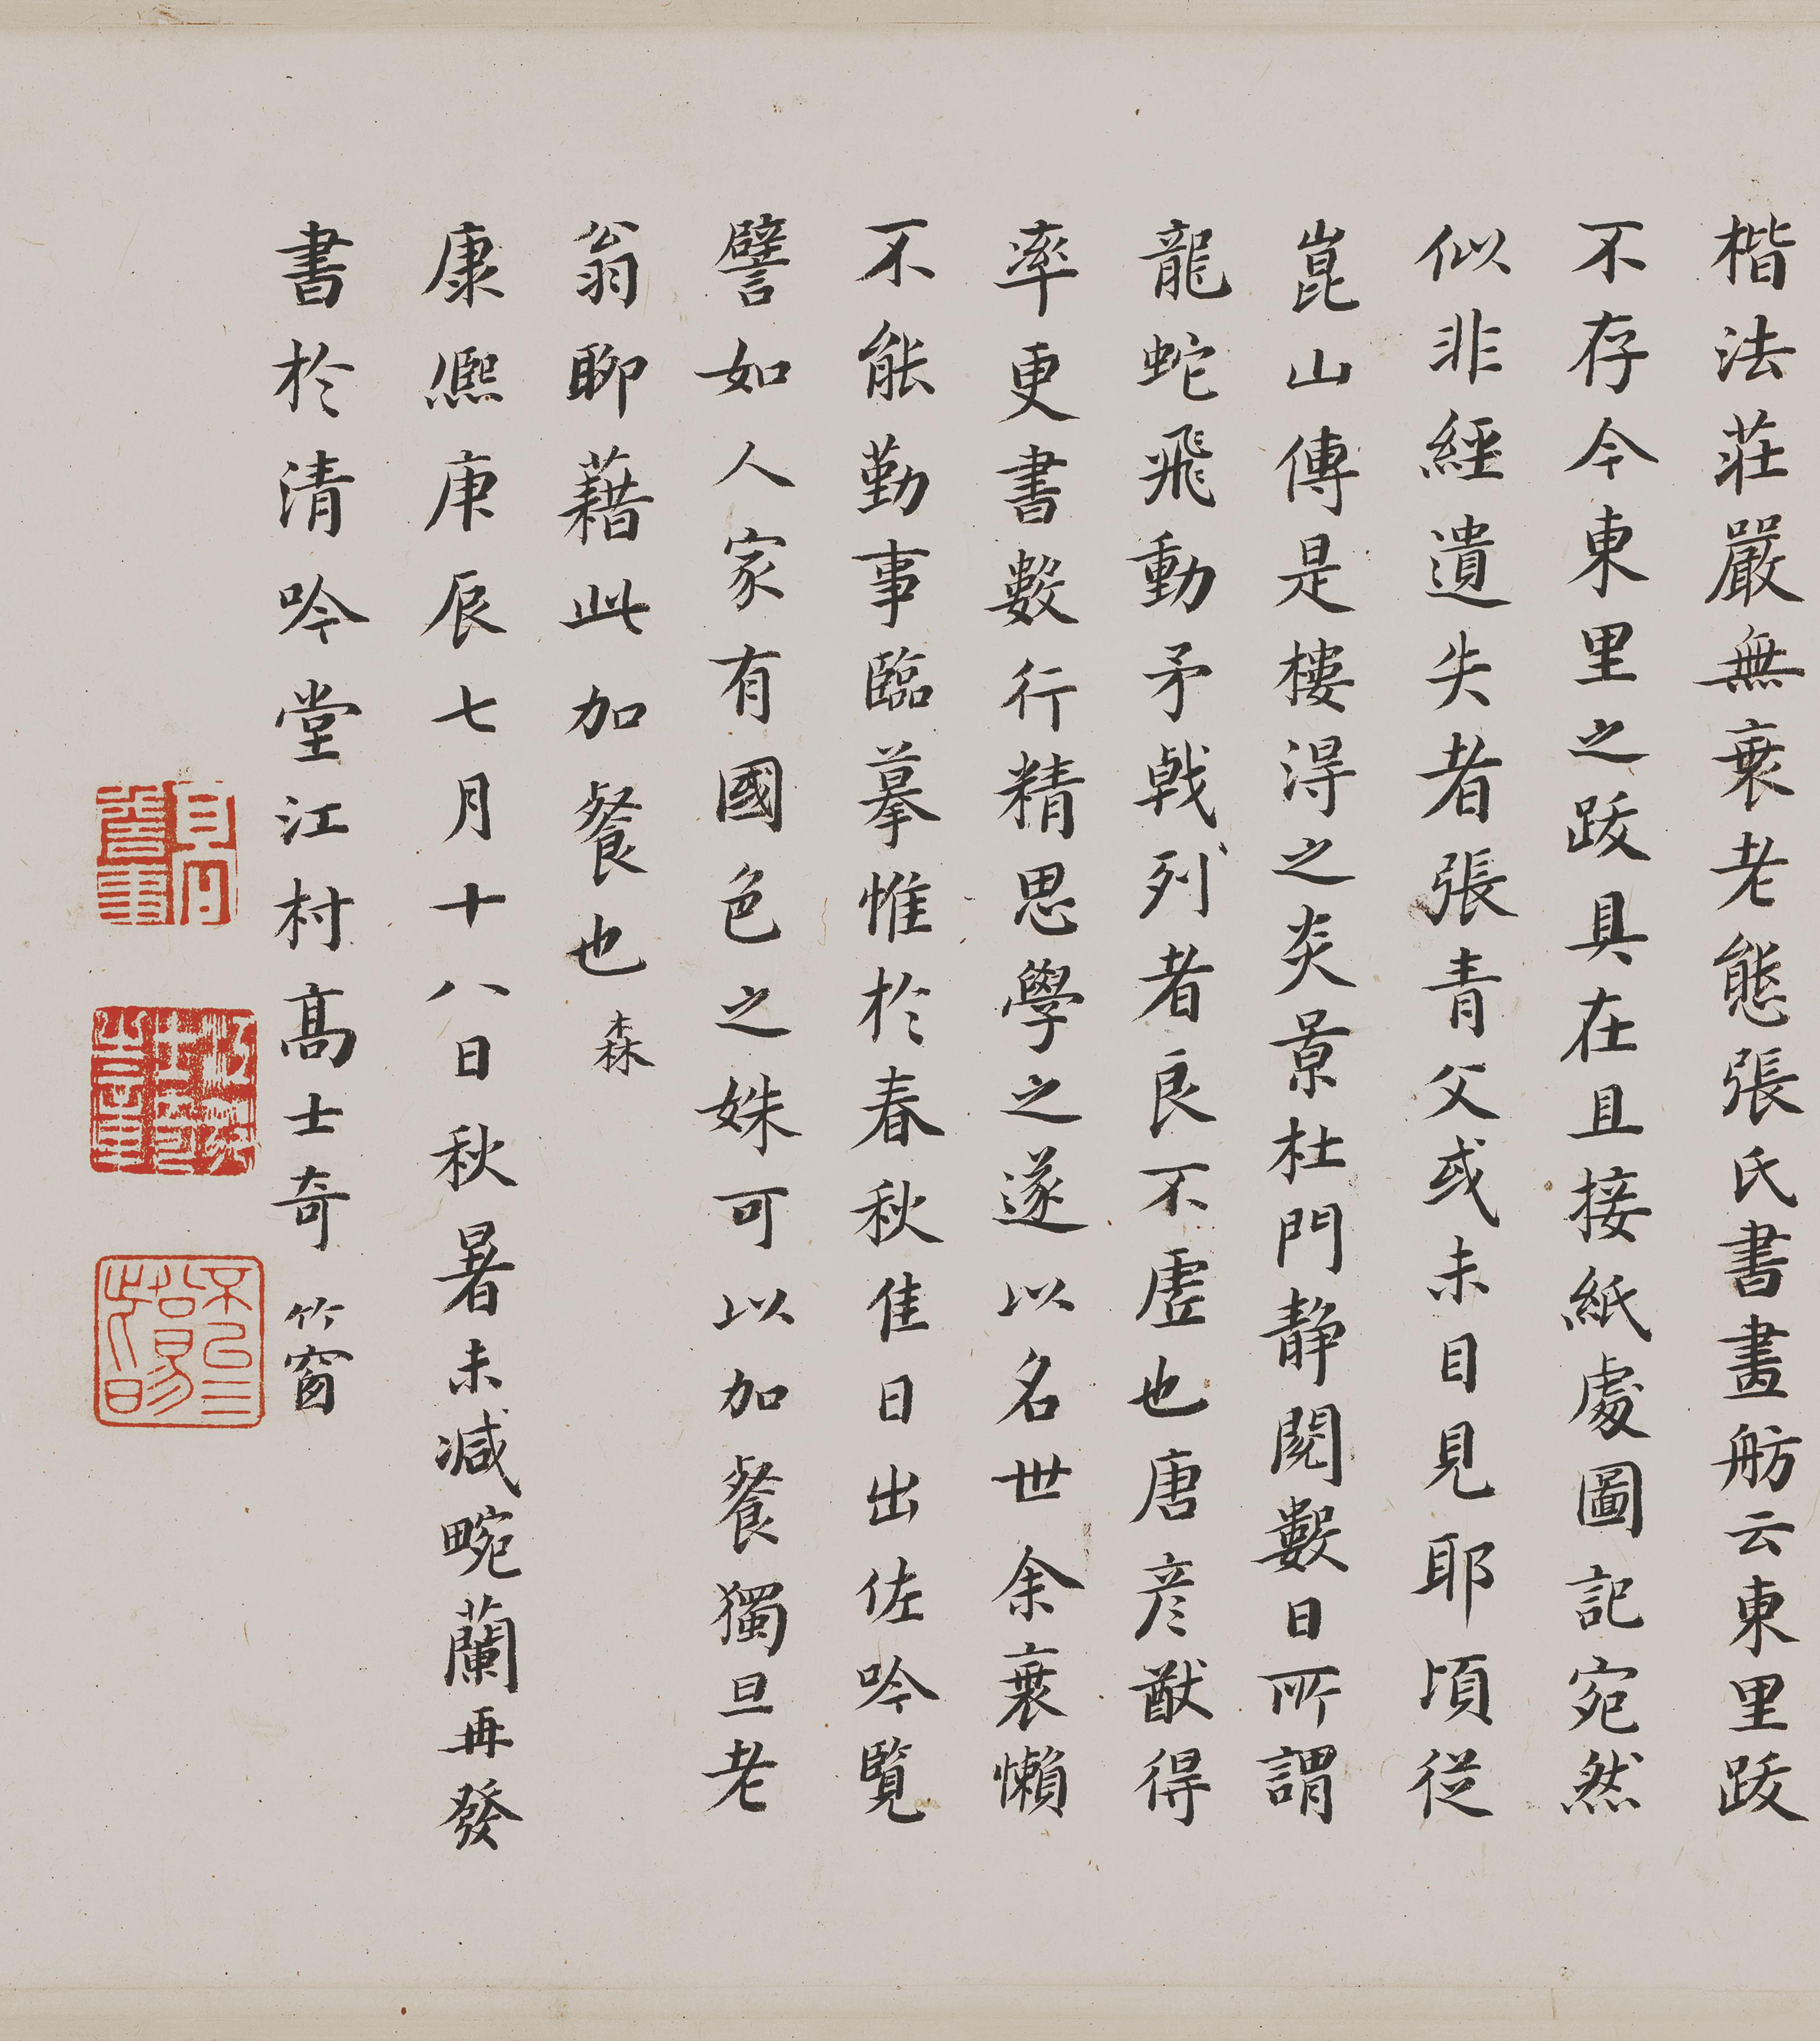 楷法莊嚴無衰老態張氏書畫舫云東里跋
不存今東里之跋具在且接紙處圖記宛然
似非經遺失者張青父或未目見耶頃從
崑山傳是樓得之炎景杜門靜閱數日所謂
龍蛇飛動矛戟列者良不虛也唐彥猷得
率更書數行精思學之遂以名世余衰懶
不能勤事臨摹惟於春秋佳日出佐吟覽
譬如人家有國色之姝可以加餐獨旦老
翁聊藉此加餐也森
康熙庚辰七月十八日秋暑未減畹蘭再發
書於清吟堂江村高士奇 竹窗